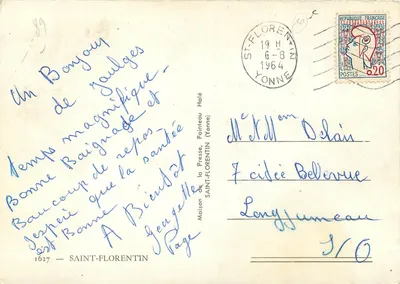 89
Un Bonjour
de Jaulges
Temps magnifique -
Bonne Baignade et
Beaucoup de repos
J'espère que la santée
est Bonne
A Bientôt
Georgette
Page
1627 — SAINT-FLORENTIN
Maison de la Presse, Pointeau Malé
SAINT-FLORENTIN (Yonne)
ST-FLORENTIN
19 H
6-8
1964
YONNE
REPUBLIQUE FRANÇAISE
POSTES
0,20
Mr et Mme Delais
7 citée Bellevue
Longjumeau
S/O